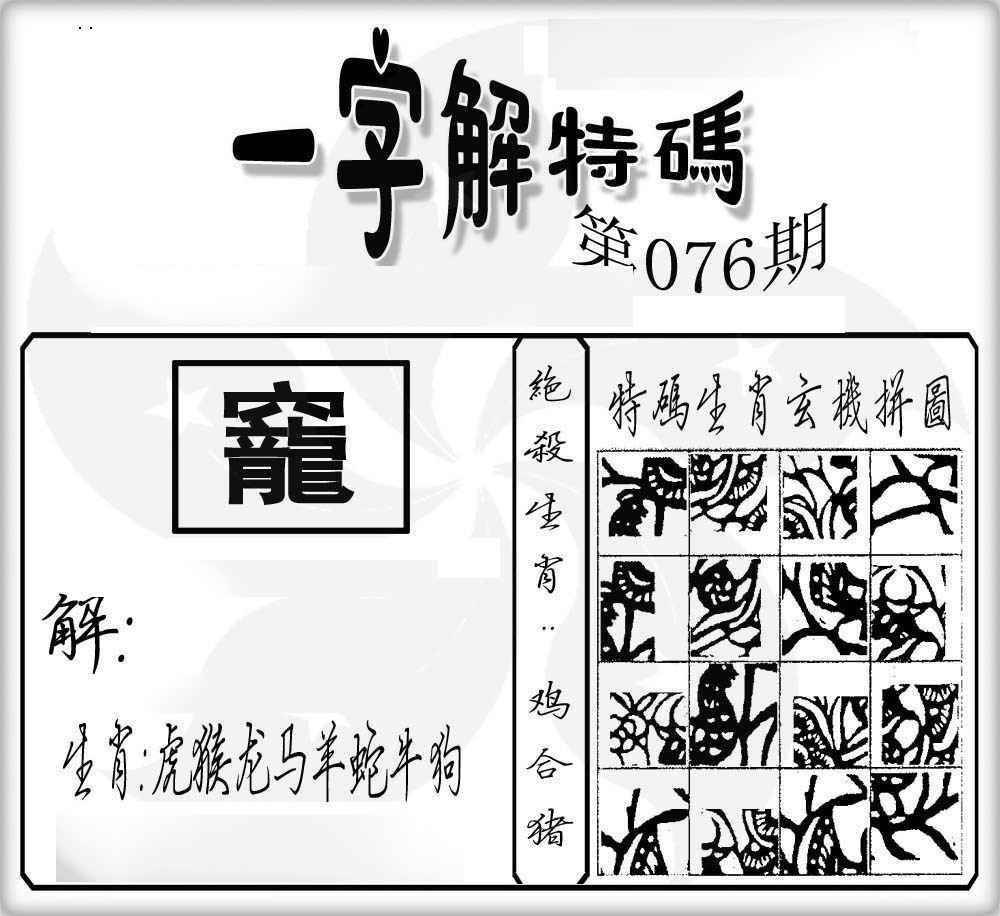 一字解特碼
第076期
竉
解:
生肖:虎猴龙马羊蛇牛狗
絶殺生肖:鸡合猪
特碼生肖玄機拼圖